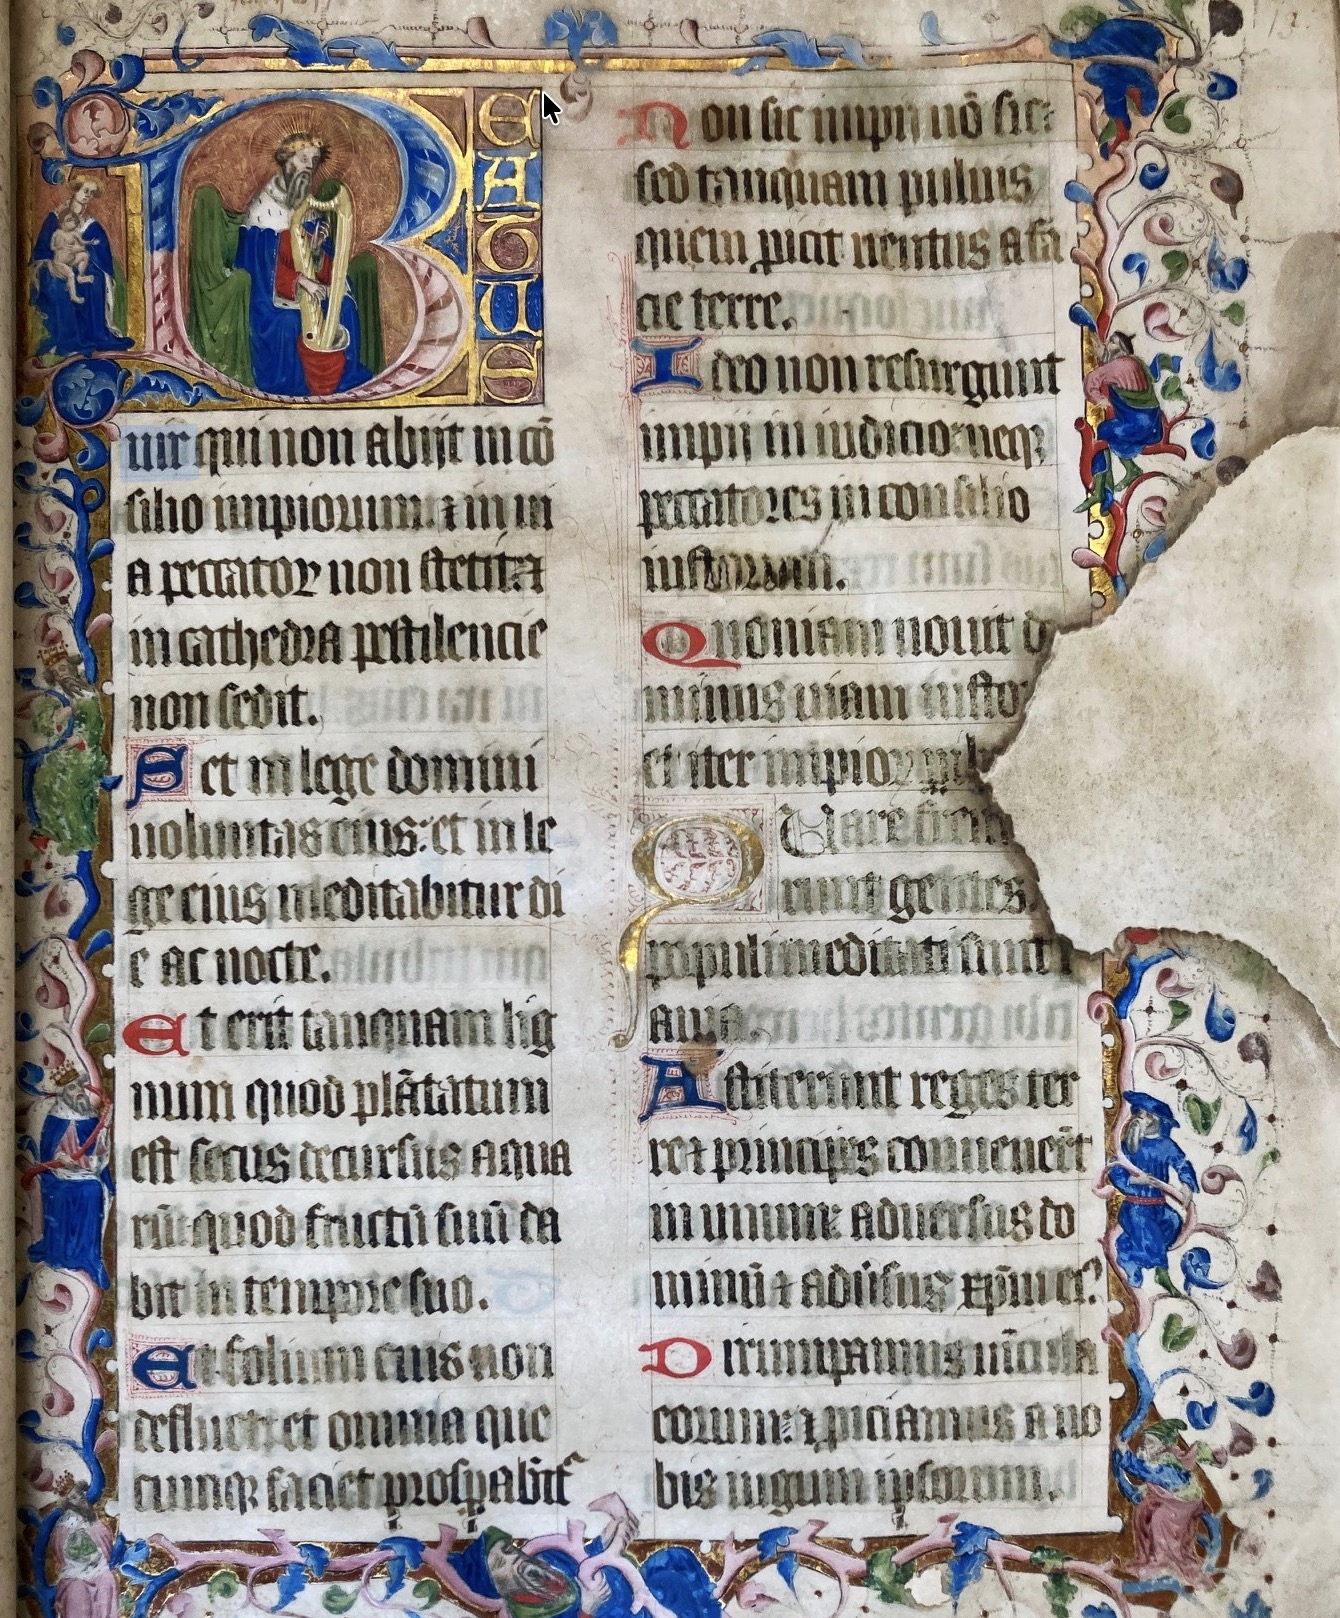 BEATUS
uir qui non abijt in cō
silio impiorum: ⁊ in ui
a peccatoꝝ non stetit: ⁊
in cathedra pestilencie
non sedit.
Set in lege domini
uoluntas eius: et in le
ge eius meditabitur di
e ac nocte.
Et erit tanquam lig
num quod plātatum
est secus decursus aqua
rū: quod fructū suū da
bit in tempore suo.
Et folium eius non
defluet: et omnia que
cumqꝫ faciet prosꝑabūt᷑
Non sic impii nō sic:
sed tanquam puluis
quem ꝓicit uentus a fa
cie terre.
Ideo non resurgunt
impii in iudicio: neqꝫ
peccatores in consilio
iustorum.
Quoniam nouit do
minus uiam iusto
et iter impioꝝ
Quare frem
runt gentes
populi meditati sunt i
ania.
Astiterunt reges ter
re ⁊ principes conuenerūt
in unum: aduersus do
minū ⁊ adūsus xp̄m eiꝰ
Dirumpamus uīcula
eorum: ⁊ ꝓiciamus a no
bis iugum ipsorum.